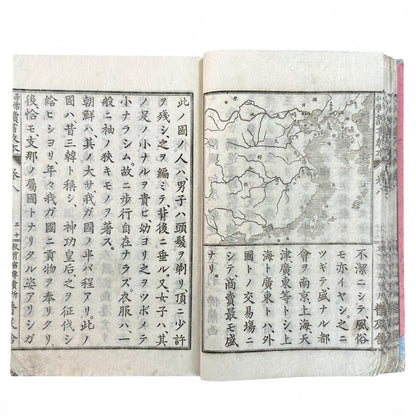 不潔ニシテ、風俗
モ亦イヤシ。之ニ
ツギテ盛ナル都
會ヲ南京上海天
津廣東等トシ、上
海ト廣東トハ、外
國トノ交易場ニ
シテ商賣最モ盛
ナリ。
此ノ國ノ人ハ、男子ハ頭髮ヲ剃リ、頂ニ少許
ヲ殘シ、之ヲ編ミテ背後ニ垂ル。又女子ハ、其
ノ足ノ小ナルヲ貴ビ、幼ヨリ之ヲツボメテ
小ナラシム。故ニ歩行自在ナラズ。衣服ハ、一
般ニ袖ノ狹キモノヲ著ス。
朝鮮ハ其ノ大サ我ガ國ノ半バ程アリ。此ノ
國ハ昔三韓ト稱シ、神功皇后之ヲ征伐シ
給ヒシヨリ、年々我ガ國ニ貢物ヲ奉リタリ。
後恰モ支那ノ屬國トナリタル姿アリシガ